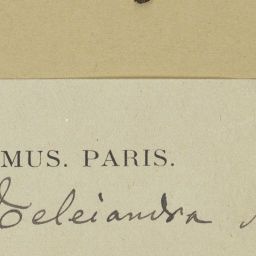 MUS. PARIS.
Teleiandra